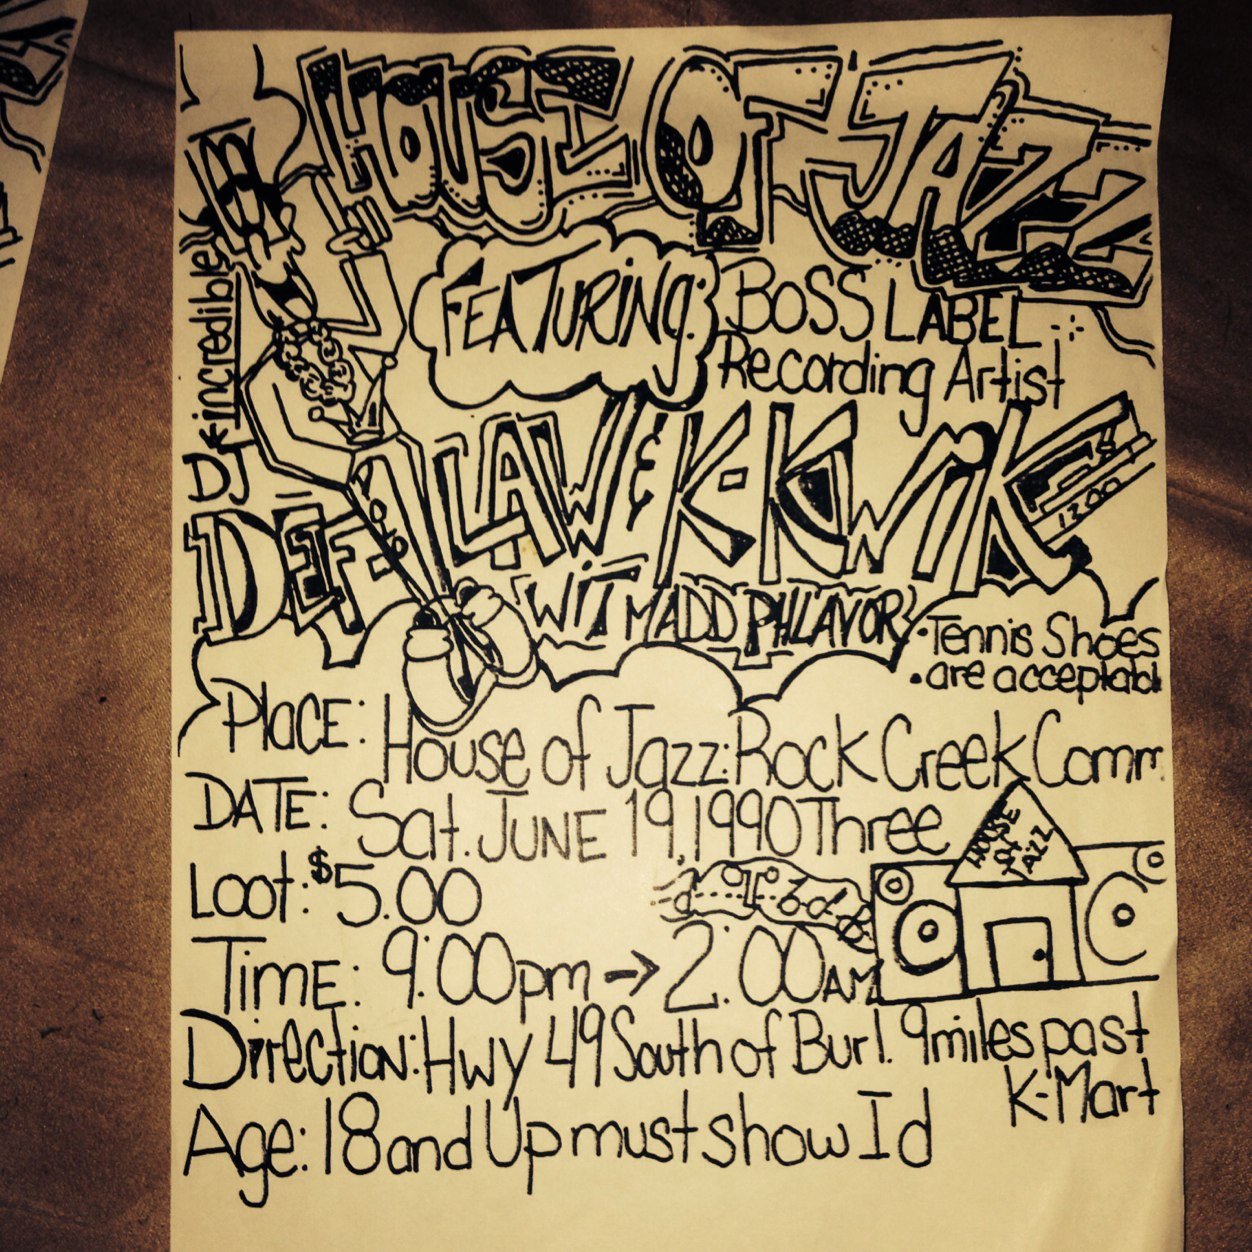 HOUSE OF JAZZ
FEATURING:
BOSS LABEL
Recording Artist
DJ K-incredible
DEF
LAW & K-KWIK
1200
'WIT MADD PHLAVOR'
• Tennis Shoes
• are acceptabl
PLACE: House of Jazz: Rock Creek Comm.
DATE: Sat. JUNE 19, 1990 Three
HOUSE
of
JAZZ
Loot: $5.00
TIME: 9:00pm → 2:00AM
Direction: Hwy 49 South of Burl. 9miles past
K-Mart
Age: 18 and Up must show Id